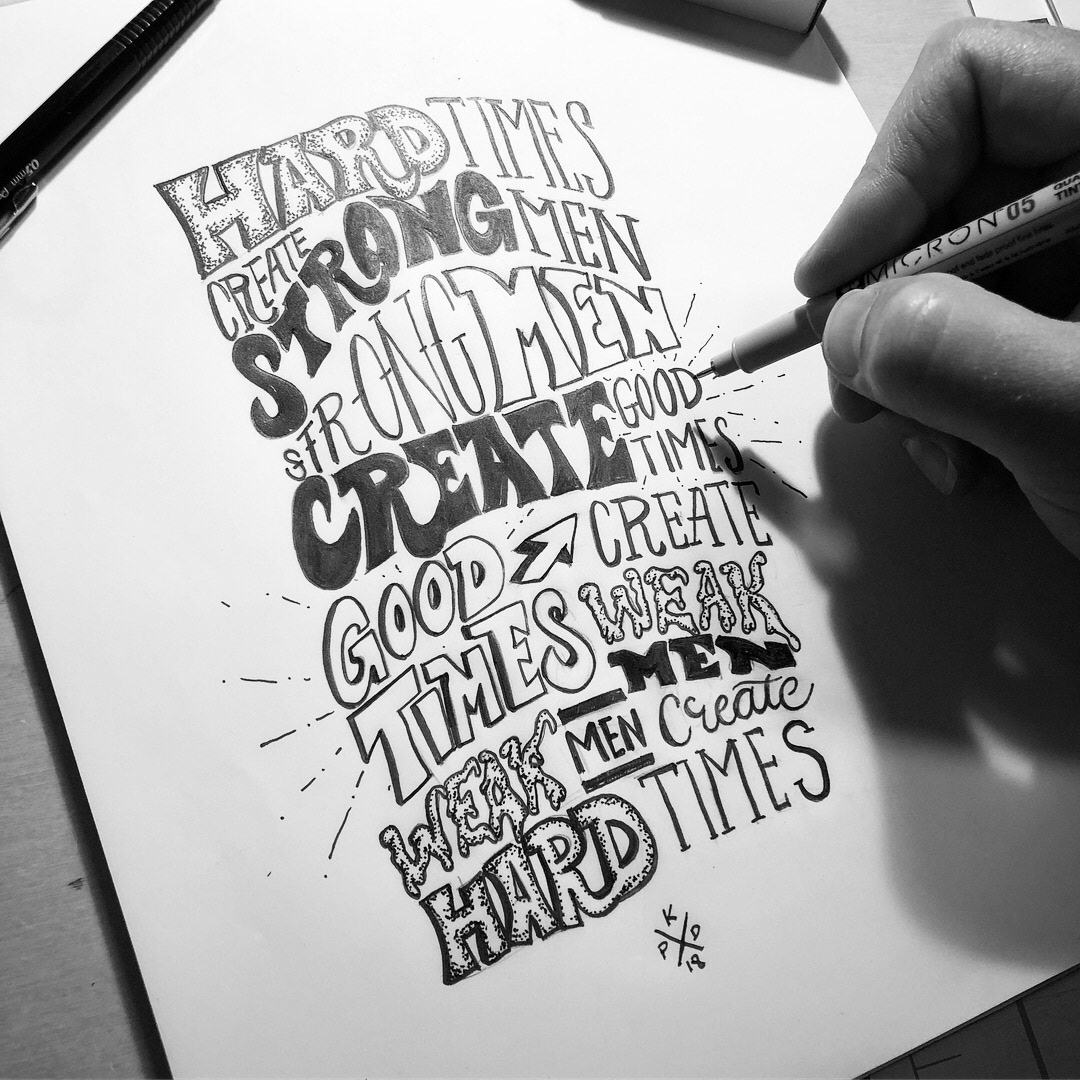 HARD TIMES
CREATE STRONG MEN
& STRONG MEN
CREATE GOOD TIMES
GOOD TIMES CREATE
WEAK MEN
WEAK MEN Create
HARD TIMES
K
P D
18
MICRON 05
0.5mm